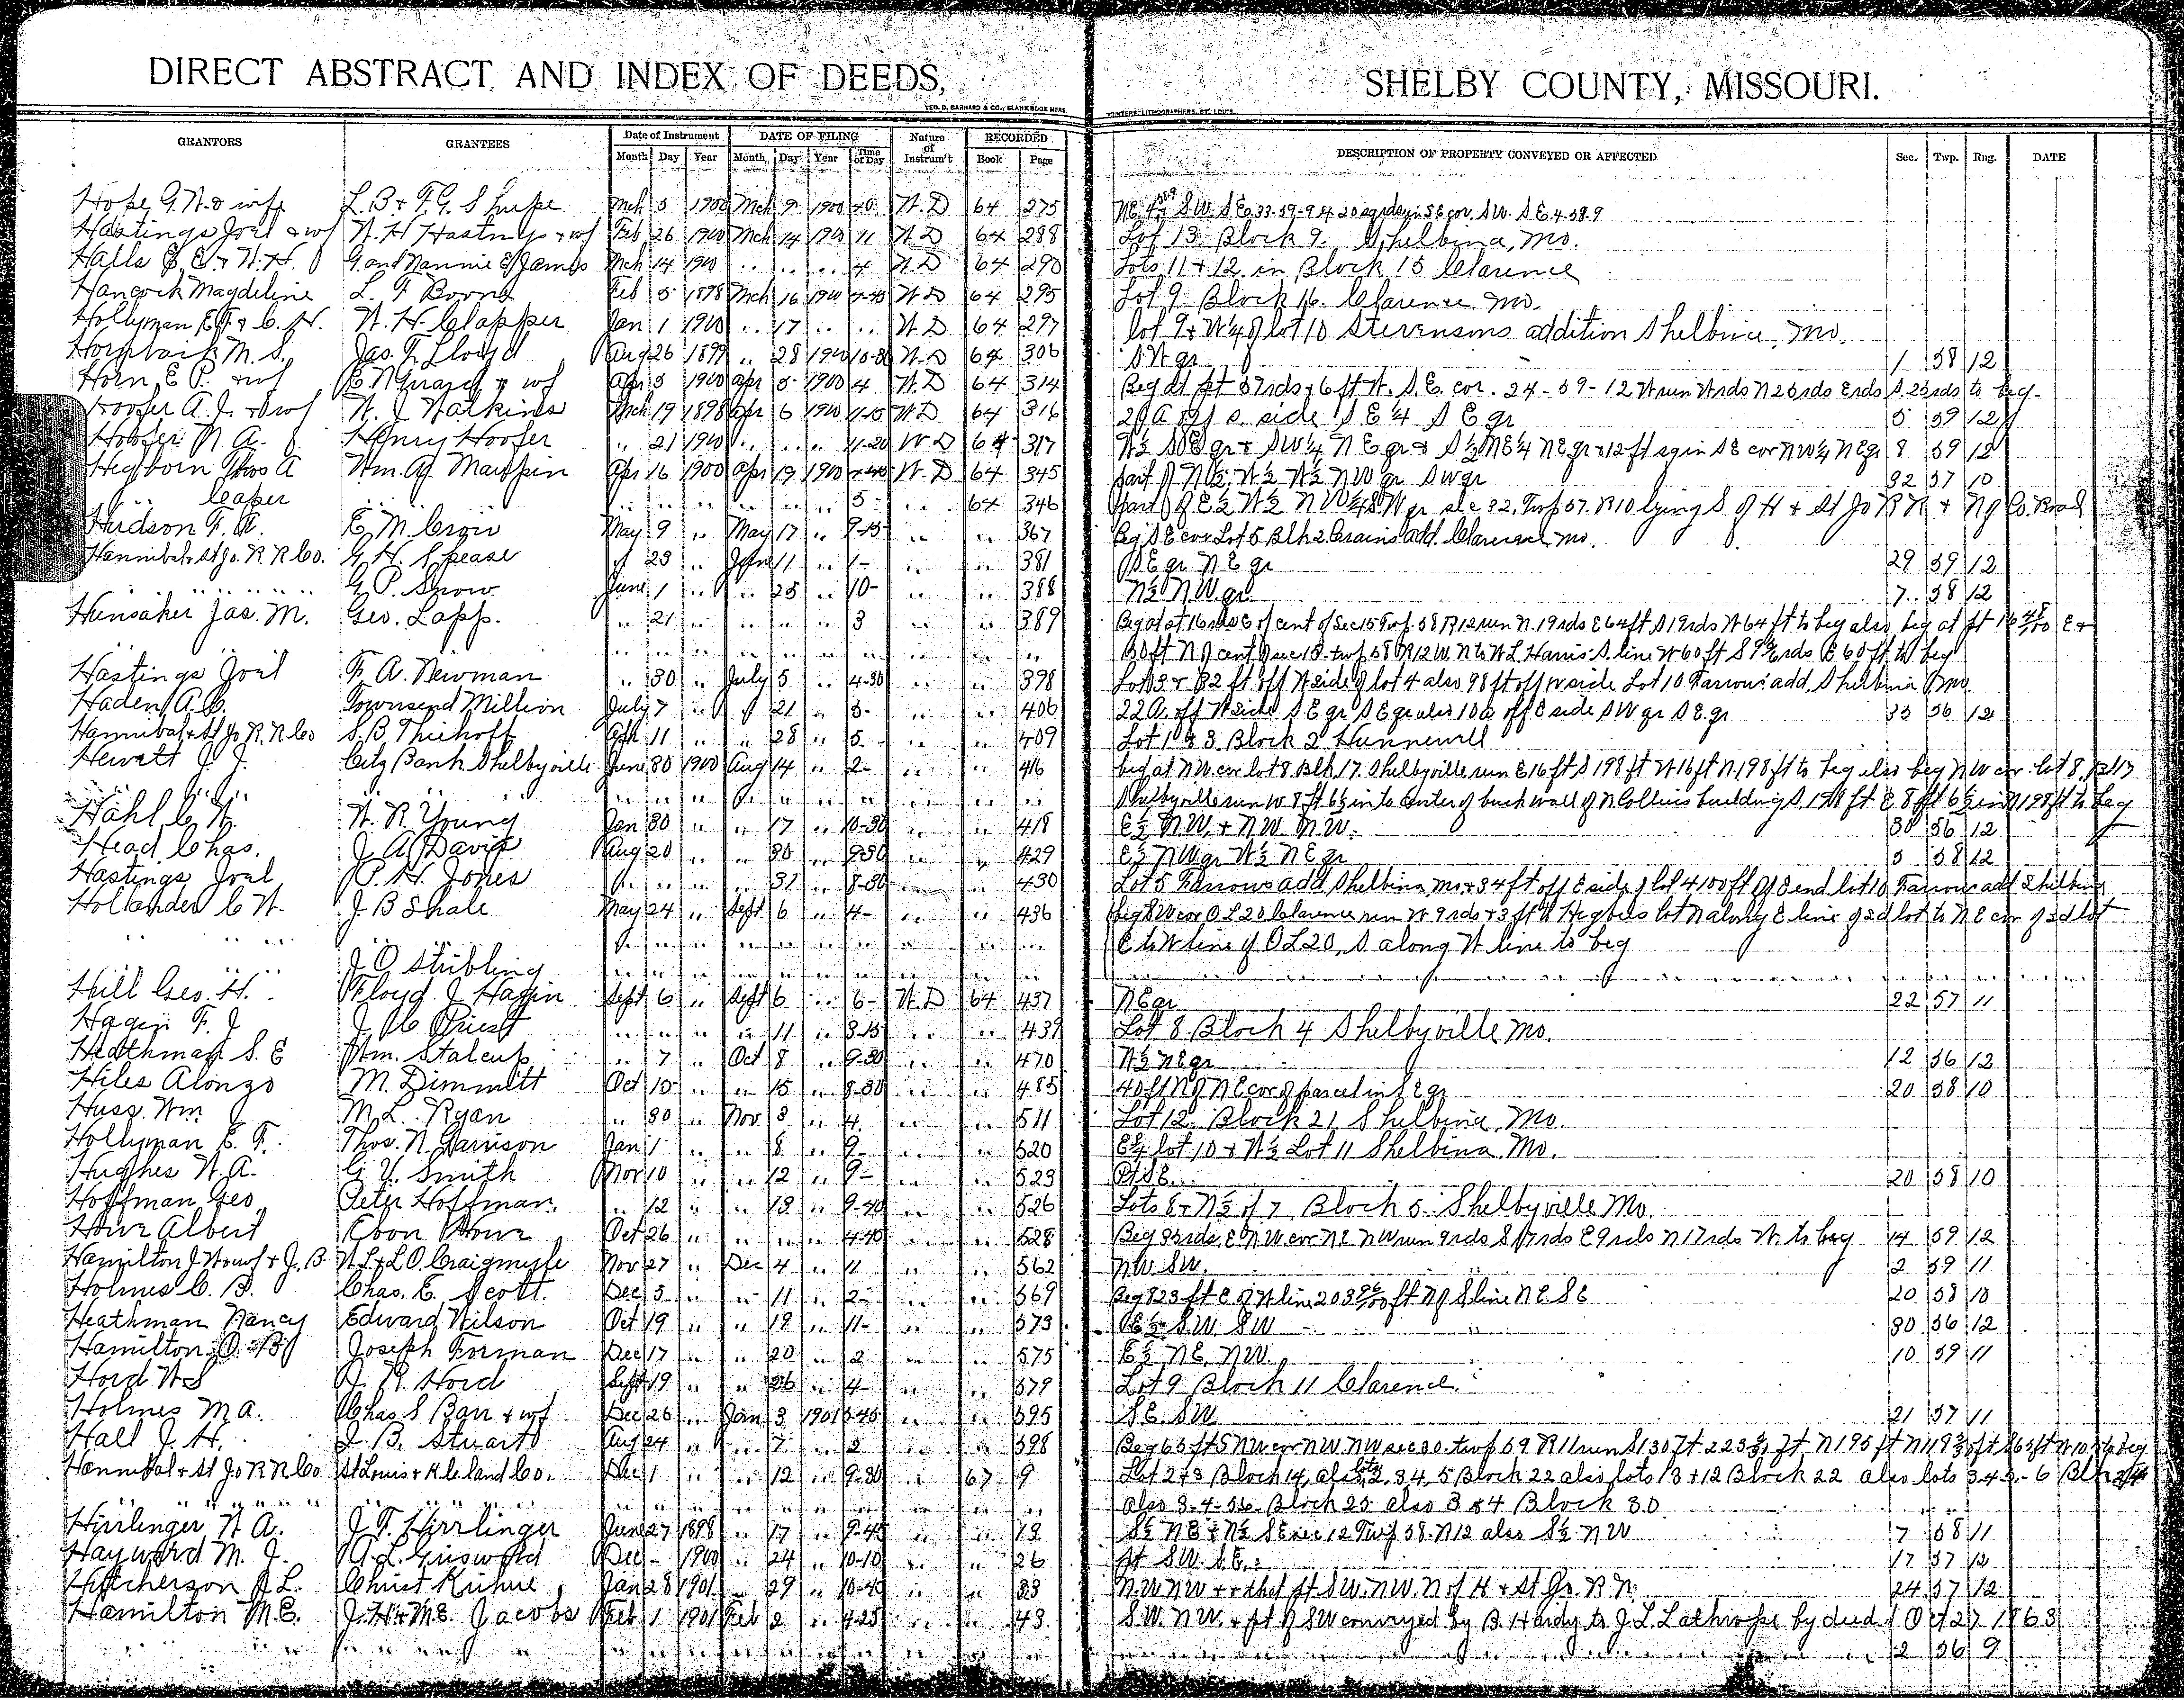 DIRECT ABSTRACT AND INDEX OF DEEDS, SHELBY COUNTY, MISSOURI.
GEO. D. BARNARD & CO., BLANK BOOK MFRS PRINTERS, LITHOGRAPHERS, ST. LOUIS
GRANTORS GRANTEES Date of Instrument DATE OF FILING Nature of Instrum't RECORDED DESCRIPTION OF PROPERTY CONVEYED OR AFFECTED Sec. Twp. Rng. DATE
Month Day Year Month Day Year Time of Day Book Page
Hope G. W. & wife L. B. & F. G. Mch 5 1900 Mch 9 1900 W. D 64 275
Hastings Joel & wf W. H. Hastings & wf Feb 26 1900 Mch 14 1900 11 W. D 64 288 Lot 13 Block 9. Shelbina, Mo.
Halls E. E. & W. H. G. and Nannie E. James Mch 14 1900 .. .. .. 4 W. D 64 290 Lots 11 & 12 in Block 15 Clarence
Hancock Magdeline L. F. Feb 5 1898 Mch 16 1900 W. D 64 295 Lot 9 Block 16. Clarence, Mo.
Hollyman E. F. & C. H. W. H. Clapper Jan 1 1900 .. 17 .. .. W. D 64 297 lot 9 & W¼ of lot 10 Stevensons addition Shelbina, Mo.
M. S. Jas. T. Lloyd Aug 26 1899 .. 28 1900 10-30 W. D 64 306 S W qr 1 58 12
Horn, E P. & wf E N & wf Apr 5 1900 Apr 5 1900 4 W. D 64 314 Beg at pt 57 rds & 6 ft W. S. E. cor. 24-59-12 W run W rds N 25 rds E rds S. 25 rds to beg.
Hoofer A. J. & wf W. J. Watkins Mch 19 1898 Apr 6 1900 11-15 W D 64 316 20 A off S. side S E ¼ S E qr 5 59 12
Hoofer N. A. Henry Hoofer .. 21 1900 .. .. .. 11-20 W D 64 317 W½ S E qr & SW¼ N E qr & S½ NE¼ N E qr & 12 ft sq in S E cor NW¼ N E qr 8 59 12
Thos A Wm. A. Maupin Apr 16 1900 Apr 19 1900 W. D 64 345 part of W½ W½ NW qr SW qr 32 57 10
.. .. Casper .. .. .. .. .. .. .. 5 .. 64 346 part of E½ W½ NW¼ S.W qr sec 32, Twp 57. R 10 lying S of H & St Jo R R & N of Co. Road
Hudson F. A. E. M. Crow May 9 .. May 17 .. 9-15 .. .. 367 Beg S E cor Lot 5 Blk 2 Crains add. Clarence, Mo.
Hannibal & St Jo. R. R. Co. G. H. Spease .. 23 .. June 11 .. 1- .. .. 381 S E qr N E qr 29 59 12
.. .. .. G. P. Snow June 1 .. .. 25 .. 10- .. .. 388 N½ N.W. qr 7 58 12
Hunsaker Jas. M. Geo. Lapp. .. 21 .. .. .. .. 3 .. .. 389 Beg at pt 16 rds E of cent of Sec 15 Twp. 58 R 12 run N. 19 rds E 64 ft S 19 rds W 64 ft to beg also beg at pt
.. .. .. .. .. 80 ft N of cent of sec 15 twp 58 R 12 W. N to W. L. Harris S. line W 60 ft S rds E 60 ft to beg
Hastings Joel F. A. Newman .. 30 .. July 5 .. 4-30 .. .. 398 Lot 3 & 32 ft off W side of lot 4 also 98 ft off W side Lot 10 Farrows add. Shelbina Mo
Haden A. C. Townsend Million July 7 .. .. 21 .. 5- .. .. 406 22 A. off W side S E qr S E qr also 10 a off E side S W qr S E. qr 35 56 12
Hannibal & St Jo R. R. Co S. B. Thiehoff Apr 11 .. .. 28 .. 5 .. .. 409 Lot 1 & 3 Block 2 Hunnewell
Hewett J. J. Citz Bank Shelbyville June 30 1900 Aug 14 .. 2- .. .. 416 beg at N W cor lot 8 Blk 17. Shelbyville run E 16 ft S 198 ft W 16 ft N 198 ft to beg also beg N W cor lot 8.
.. .. .. .. .. Shelbyville run W 8 ft 6½ in to center of buck wall of N Collins building S. 198 ft E 8 ft 6½ in N 198 ft to beg
Hahl C. W. W. R. Young Jan 30 .. .. 17 .. 10-30 .. .. 418 E½ N. W. & N W N. W. 30 56 12
Head Chas. J. A. Davis Aug 20 .. .. 30 .. 9-30 .. .. 429 E½ N W qr W½ N E qr 5 58 12
Hastings Joel P. H. Jones .. .. .. .. 31 .. 8-30 .. .. 430 Lot 5 Farrows add Shelbina Mo & 34 ft off E side of lot 4 100 ft off E end lot 10 Farrows add Shelbina
Hollander C W. J. B Shale May 24 .. Sept 6 .. 4- .. .. 436 beg S W cor O L 20 Clarence run W 9 rds & 3 ft lot N along E line of sd lot to N E cor of sd lot
.. .. .. .. .. E to W line of O L 20, S along W line to beg
.. .. J. O Stribling .. .. ..
Hill Geo. H. Floyd J. Hagin Sept 6 .. Sept 6 .. 6- W. D 64 437 N E qr 22 57 11
Hagin F. J J. C. Priest .. .. .. .. 11 .. 3-15 .. .. 439 Lot 8 Block 4 Shelbyville Mo.
Heathman S. E Wm. Stalcup .. 7 .. Oct 8 .. 9-30 .. .. 470 W½ N E qr 12 56 13
Hiles Alonzo M. Dimmitt Oct 15 .. .. 15 .. 8-30 .. .. 485 40 ft N of N E cor of parcel in S E qr 20 58 10
Huss Wm J M. L. Ryan .. 30 .. Nov 3 .. 4 .. .. 511 Lot 12 Block 21 Shelbina, Mo.
Hollyman E. F. Thos. N. Garrison Jan 1 .. .. 8 .. 9- .. .. 520 E¾ lot 10 & W½ Lot 11 Shelbina, Mo.
Hughes W. A. G. V. Smith Nov 10 .. .. 12 .. 9- .. .. 523 Pt S E. 20 58 10
Hoffman Geo. Peter Hoffman. .. 12 .. .. 13 .. 9-40 .. .. 526 Lots 8 & N½ of 7 Block 5 Shelbyville Mo.
Howe Albert Ebon Howe Oct 26 .. .. .. .. 4-40 .. .. 528 Beg 35 rds. E N W cor N E N W run 9 rds S 17 rds E 9 rds N 17 rds W. to beg 14 59 12
Hamilton J. W & wf & J. B. W. L & L. O. Craigmyle Nov 27 .. Dec 4 .. 11 .. .. 562 N W. S W. 2 59 11
Holmes C. B. Chas. E. Scott. Dec 5 .. .. 11 .. 2- .. .. 569 Beg 823 ft E of W line ft N of S line N E S E 20 58 10
Heathman Nancy Edward Wilson Oct 19 .. .. 19 .. 11- .. .. 573 E½ S W S W 30 56 12
Hamilton O. B. Joseph Forman Dec 17 .. .. 20 .. 2 .. .. 575 E½ N E, N W. 10 59 11
Hord W S J. R. Hord Sept 19 .. .. 26 .. 4- .. .. 579 Lot 9 Block 11 Clarence.
Holmes M A. Chas S Barr & wf Dec 26 .. Jan 3 1901 3-45 .. .. 595 S. E. S W 21 57 11
Hall J. H. J. B. Stuart Aug 24 .. .. 7 .. 2 .. .. 598 Beg 65 ft S N W cor N W. N W sec 30 twp 59 R 11 run S 130 ft
Hannibal & St Jo R R Co. St Louis & K. C. land Co. Dec 1 .. .. 12 .. 9-30 .. 67 9 Lot 2 & 3 Block 14, also lots 2, 3 4, 5 Block 22 also lots 13 & 12 Block 22 also lots 3-4-5-6 Blk 24
.. .. .. .. .. also 3-4-5 6. Block 25 also 3 & 4 Block 30
Hirrlinger W A. J. F. Hirrlinger June 27 1898 .. 17 .. 9-45 .. .. 13 S½ N E & N½ S E sec 12 Twp 58. R 12 also S½ N W 7 58 11
Hayward M. J. A. L. Griswold Dec - 1900 .. 24 .. 10-10 .. .. 26 pt S W. S. E. 17 57 12
Hutcherson J L. Christ Kuhne Jan 28 1901 .. 29 .. 10-40 .. .. 33 N. W N W & that pt S W. N W. N of H & St Jo. R R. 24 57 12
Hamilton M. E. J. H & M. E. Jacobs Feb 1 1901 Feb 2 .. 4-25 .. .. 43 S. W. N W. & pt of S W conveyed by B. Hardy to J. L. Lathrope by deed Oct 27 1863
.. .. .. .. .. 2 56 9